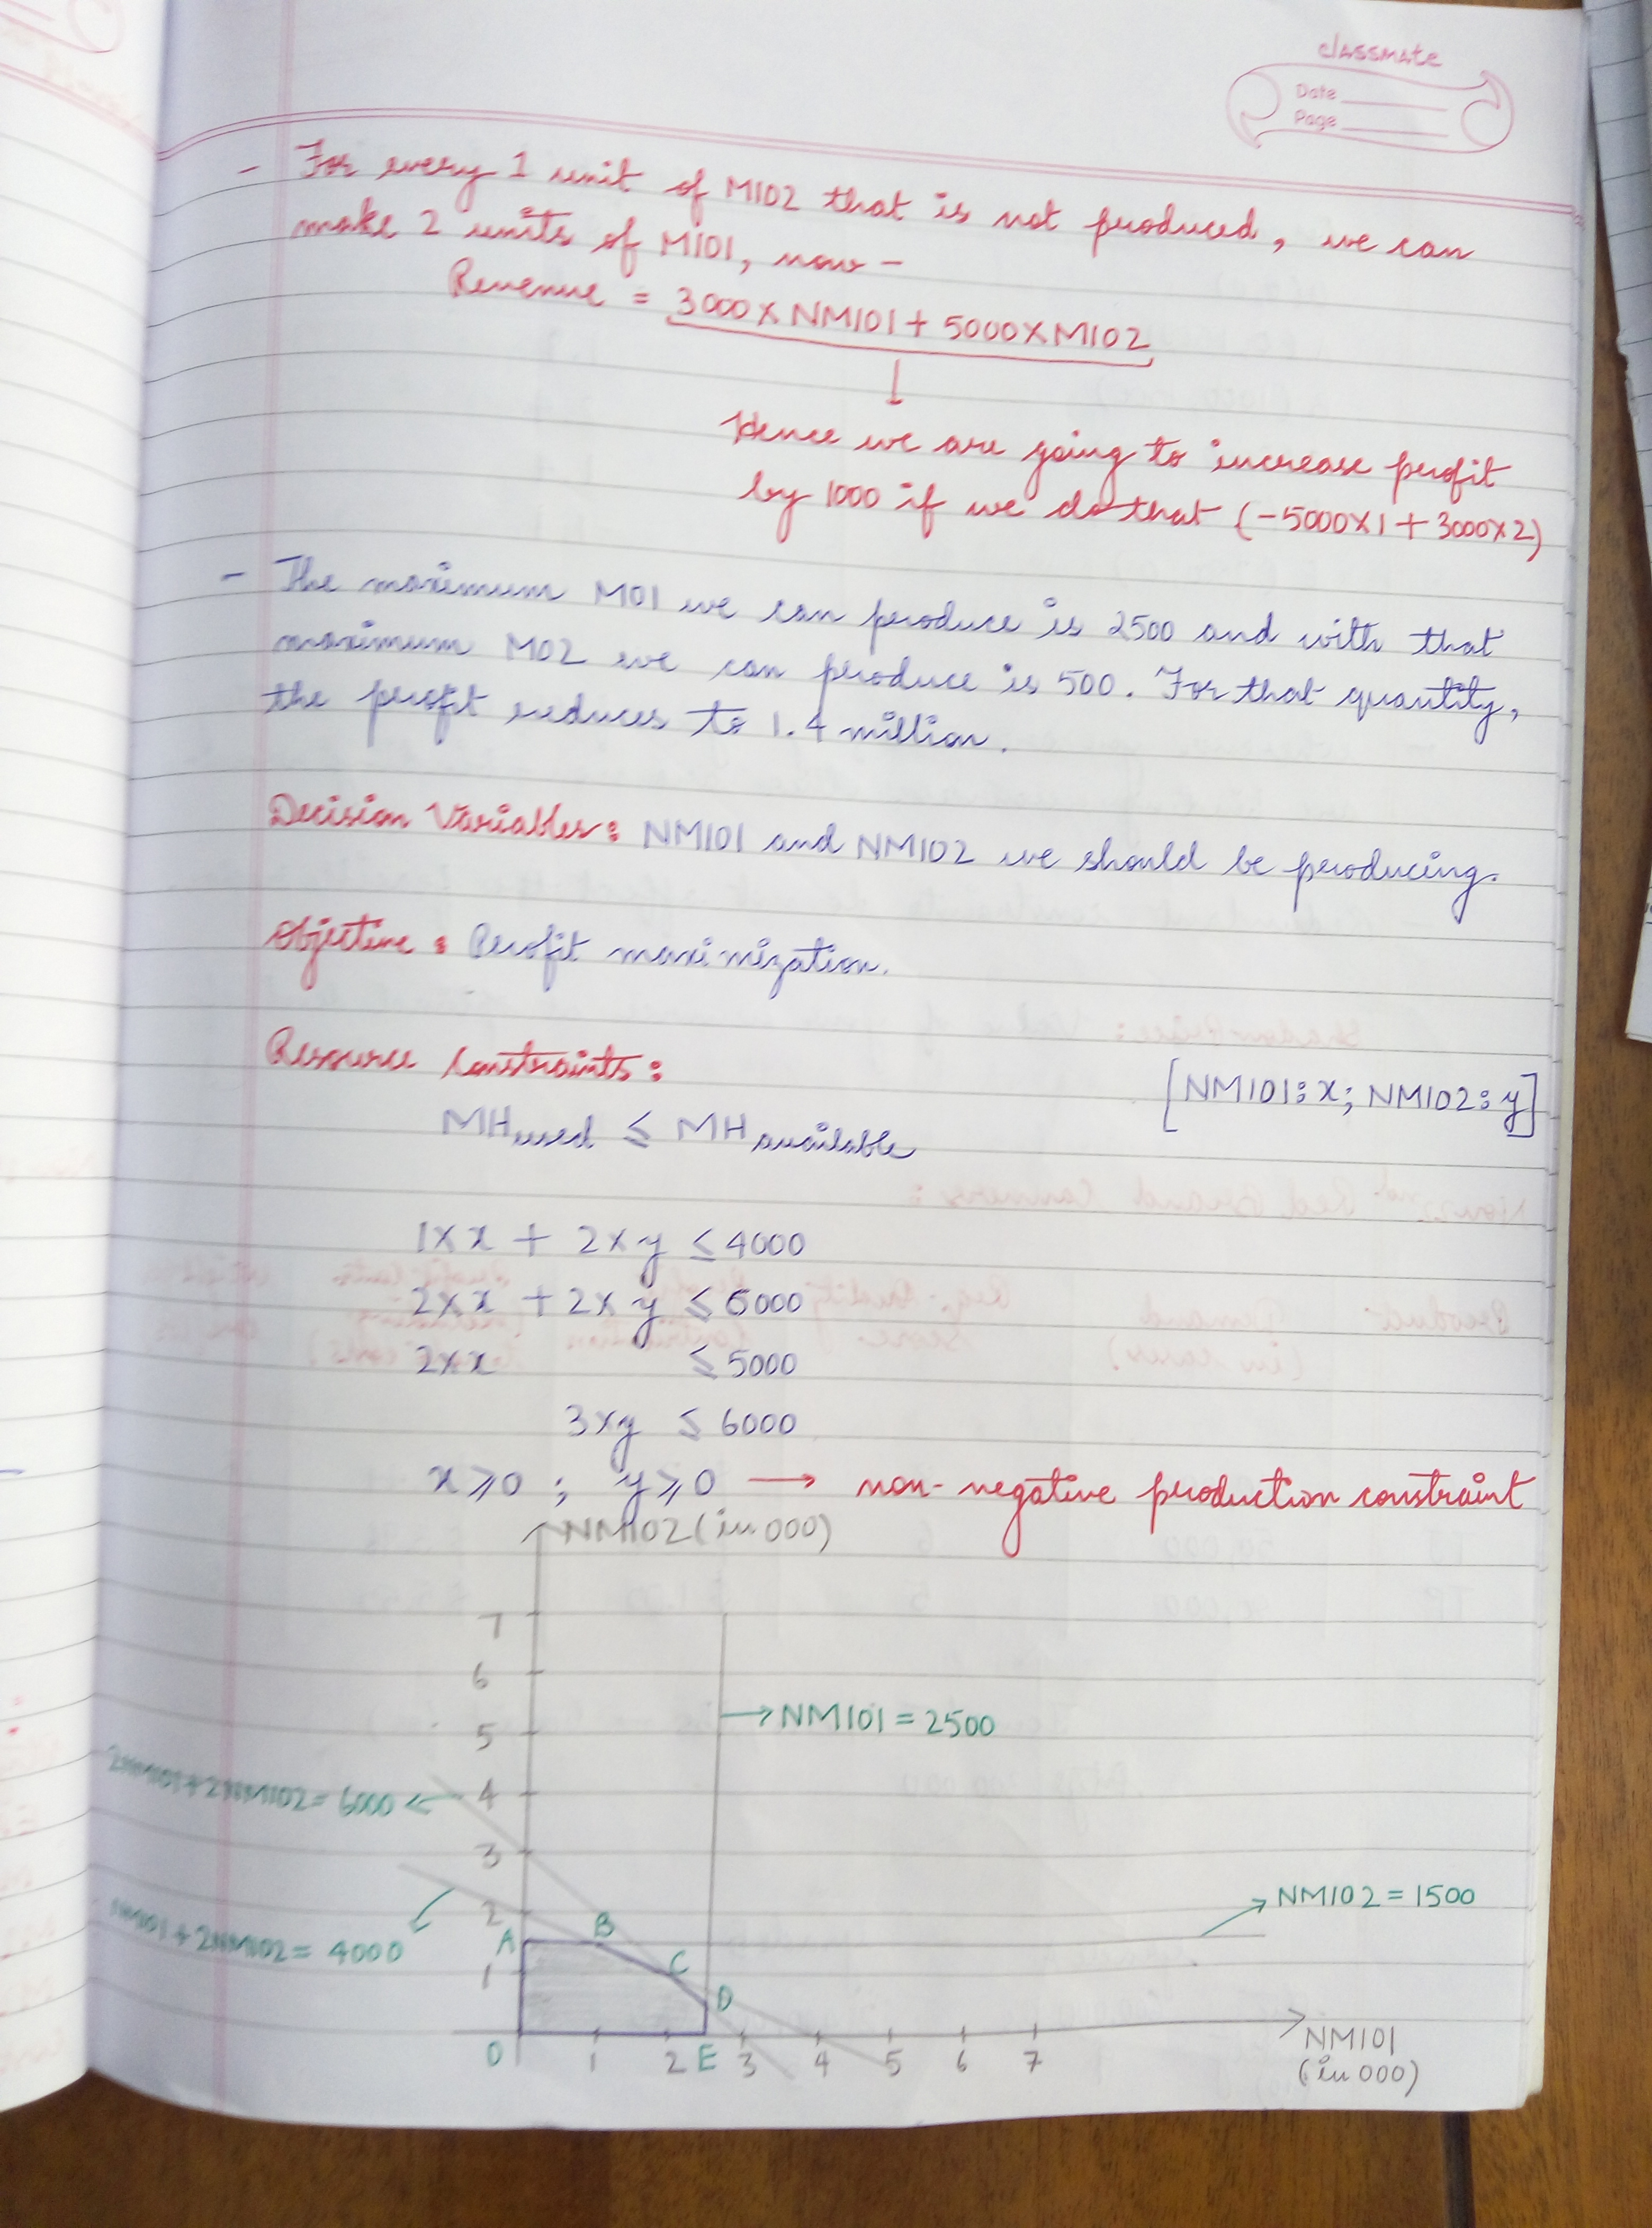 classmate
Date
Page
- For every 1 unit of M102 that is not produced, we can
make 2 units of M101, now -
Revenue = 3000×NM101 + 5000×M102
↓
Hence we are going to increase profit
by 1000 if we do that (-5000×1 + 3000×2)
- The maximum M01 we can produce is 2500 and with that
maximum M02 we can produce is 500. For that quantity,
the profit reduces to 1.4 million.
Decision Variables: NM101 and NM102 we should be producing.
Objective: Profit maximization.
Resource Constraints:
[NM101: x; NM102: y]
MH used ≤ MH available
1×x + 2×y ≤ 4000
2×x + 2×y ≤ 6000
2×x ≤ 5000
3×y ≤ 6000
x≥0 ; y≥0 → non-negative production constraint
NM102 (in 000)
7
6
5
→ NM101 = 2500
2NM101+2NM102 = 6000 ←
4
3
2
→ NM102 = 1500
NM101+2NM102 = 4000
A
B
1
C
D
O 1 2 E 3 4 5 6 7
NM101
(in 000)